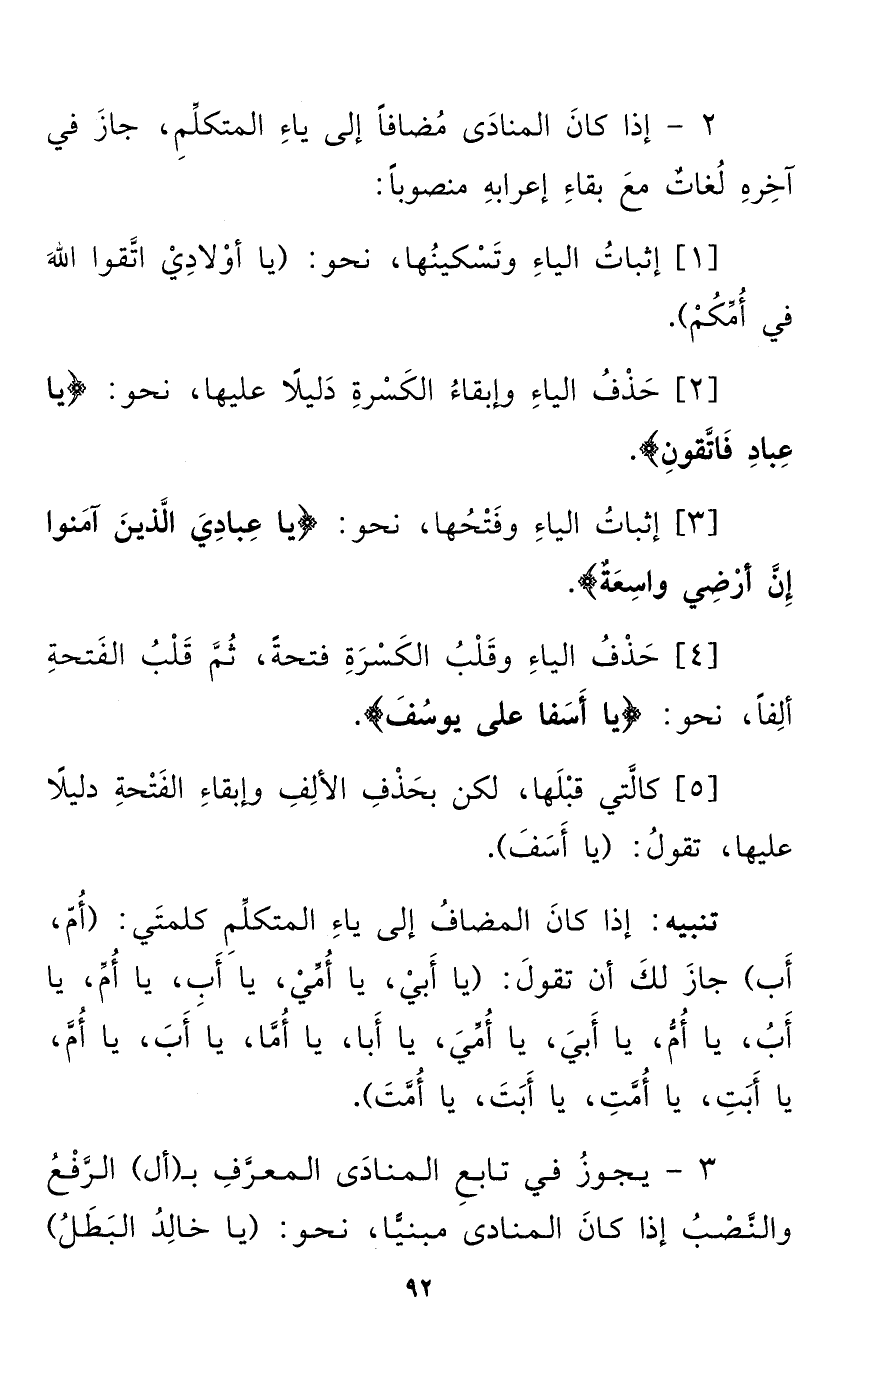 ٢ - إذا كانَ المنادَى مُضافاً إلى ياءِ المتكلِّمِ، جازَ في
آخِرِهِ لُغاتٌ معَ بقاءِ إعرابهِ منصوباً:
[١] إثباتُ الياءِ وتَسْكينُها، نحو: (يا أوْلادِيْ اتَّقوا اللهَ
في أُمِّكُمْ).
[٢] حَذْفُ الياءِ وإبقاءُ الكَسْرةِ دَليلًا عليها، نحو: ﴿يا
عِبادِ فَاتَّقونِ﴾.
[٣] إثباتُ الياءِ وفَتْحُها، نحو: ﴿يا عِبادِيَ الَّذينَ آمَنوا
إِنَّ أرْضِي واسِعَةٌ﴾.
[٤] حَذْفُ الياءِ وقَلْبُ الكَسْرَةِ فتحةً، ثُمَّ قَلْبُ الفَتحةِ
ألِفاً، نحو: ﴿يا أَسَفا على يوسُفَ﴾.
[٥] كالَّتي قبْلَها، لكن بحَذْفِ الألِفِ وإبقاءِ الفَتْحةِ دليلًا
عليها، تقولُ: (يا أَسَفَ).
تنبيه: إذا كانَ المضافُ إلى ياءِ المتكلِّمِ كلمتَي: (أُمّ،
أَب) جازَ لكَ أن تقولَ: (يا أَبيْ، يا أُمِّيْ، يا أَبِ، يا أُمِّ، يا
أَبُ، يا أُمُّ، يا أَبيَ، يا أُمِّيَ، يا أَبا، يا أُمَّا، يا أَبَ، يا أُمَّ،
يا أَبَتِ، يا أُمَّتِ، يا أَبَتَ، يا أُمَّتَ).
٣ - يجوزُ في تابعِ المنادَى المعرَّفِ بـ(أل) الرَّفْعُ
والنَّصْبُ إذا كانَ المنادى مبنيًّا، نحو: (يا خالِدُ البَطَلُ)
٩٢